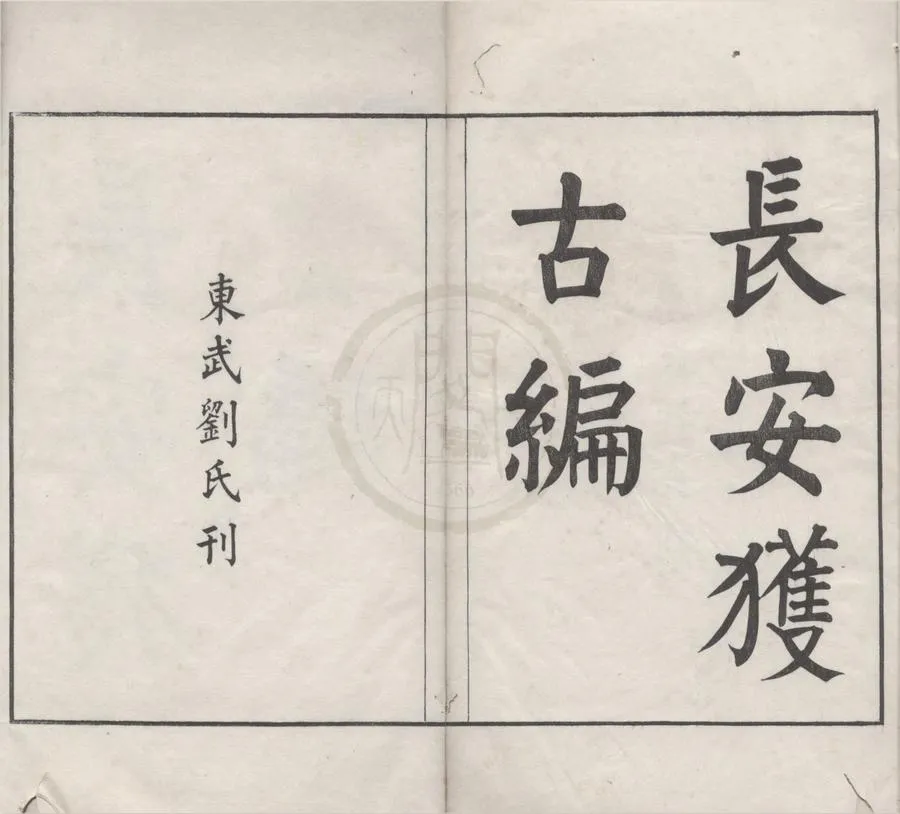 長安獲
古編
東武劉氏刊